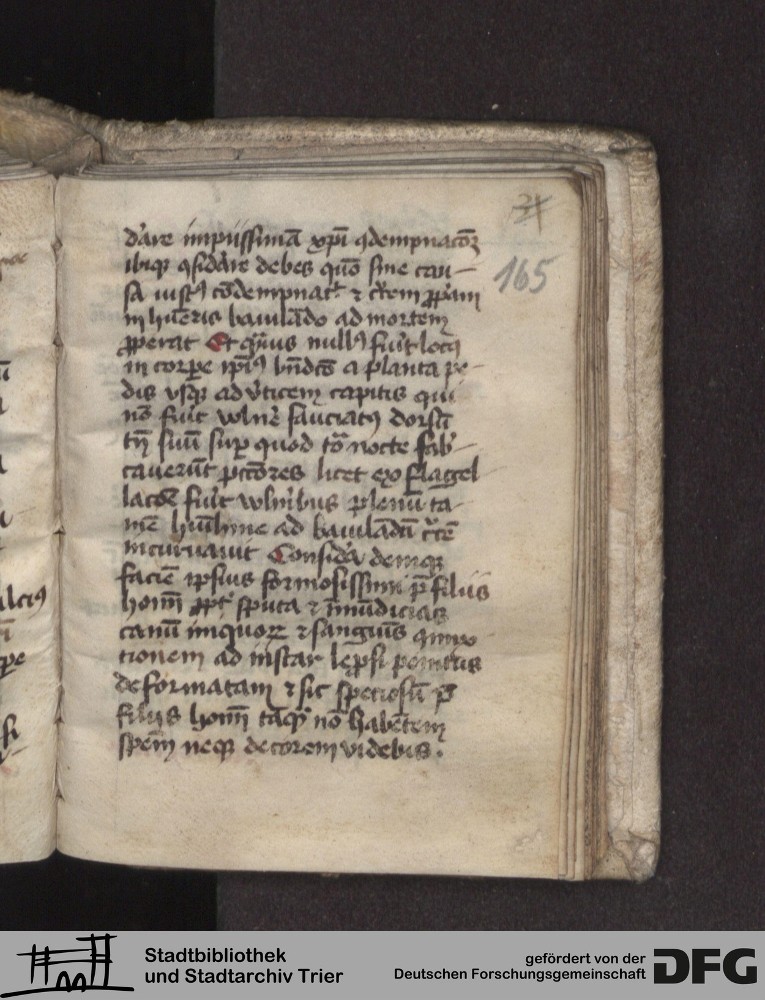 165
dare impiissimā xp̄i ꝯdempnacōꝫ
ibiqꝫ ꝯsidāre debes quō sine cau-
sa iustꝰ cōdempnatʳ ⁊ c̄cem ꝓp̄am
in hūeris baiulādo ad mortem
ꝓperat Et quis nullꝰ fūit locꝰ
in corpe ip̄iꝰ bn̄dcō a planta pe-
dis vsqꝫ ad v̄ticem capitis qui
nō fuit wlnē sauciatꝰ dorsū
tn̄ suū suꝑ quod tō nocte fab-
cauerūt pctōres licet ex flagel
lacōe fūit wlnībus plenū ta-
mē hūilime ad baiulādū c̄cē
incuruauit Considā demqꝫ
faciē ipsius formosissimi p̄ filiis
hoīm ꝓpt̄ sputa ⁊ īmūdicias
canū iniquoꝝ ⁊ sanguīs
tionem ad instar lep̄si penitus
deformatam ⁊ sic speciosū p̄
filiis hoīm tāqꝫ nō habētem
spēm neqꝫ decorem videbis .
Stadtbibliothek
und Stadtarchiv Trier
gefördert von der
Deutschen Forschungsgemeinschaft
DFG